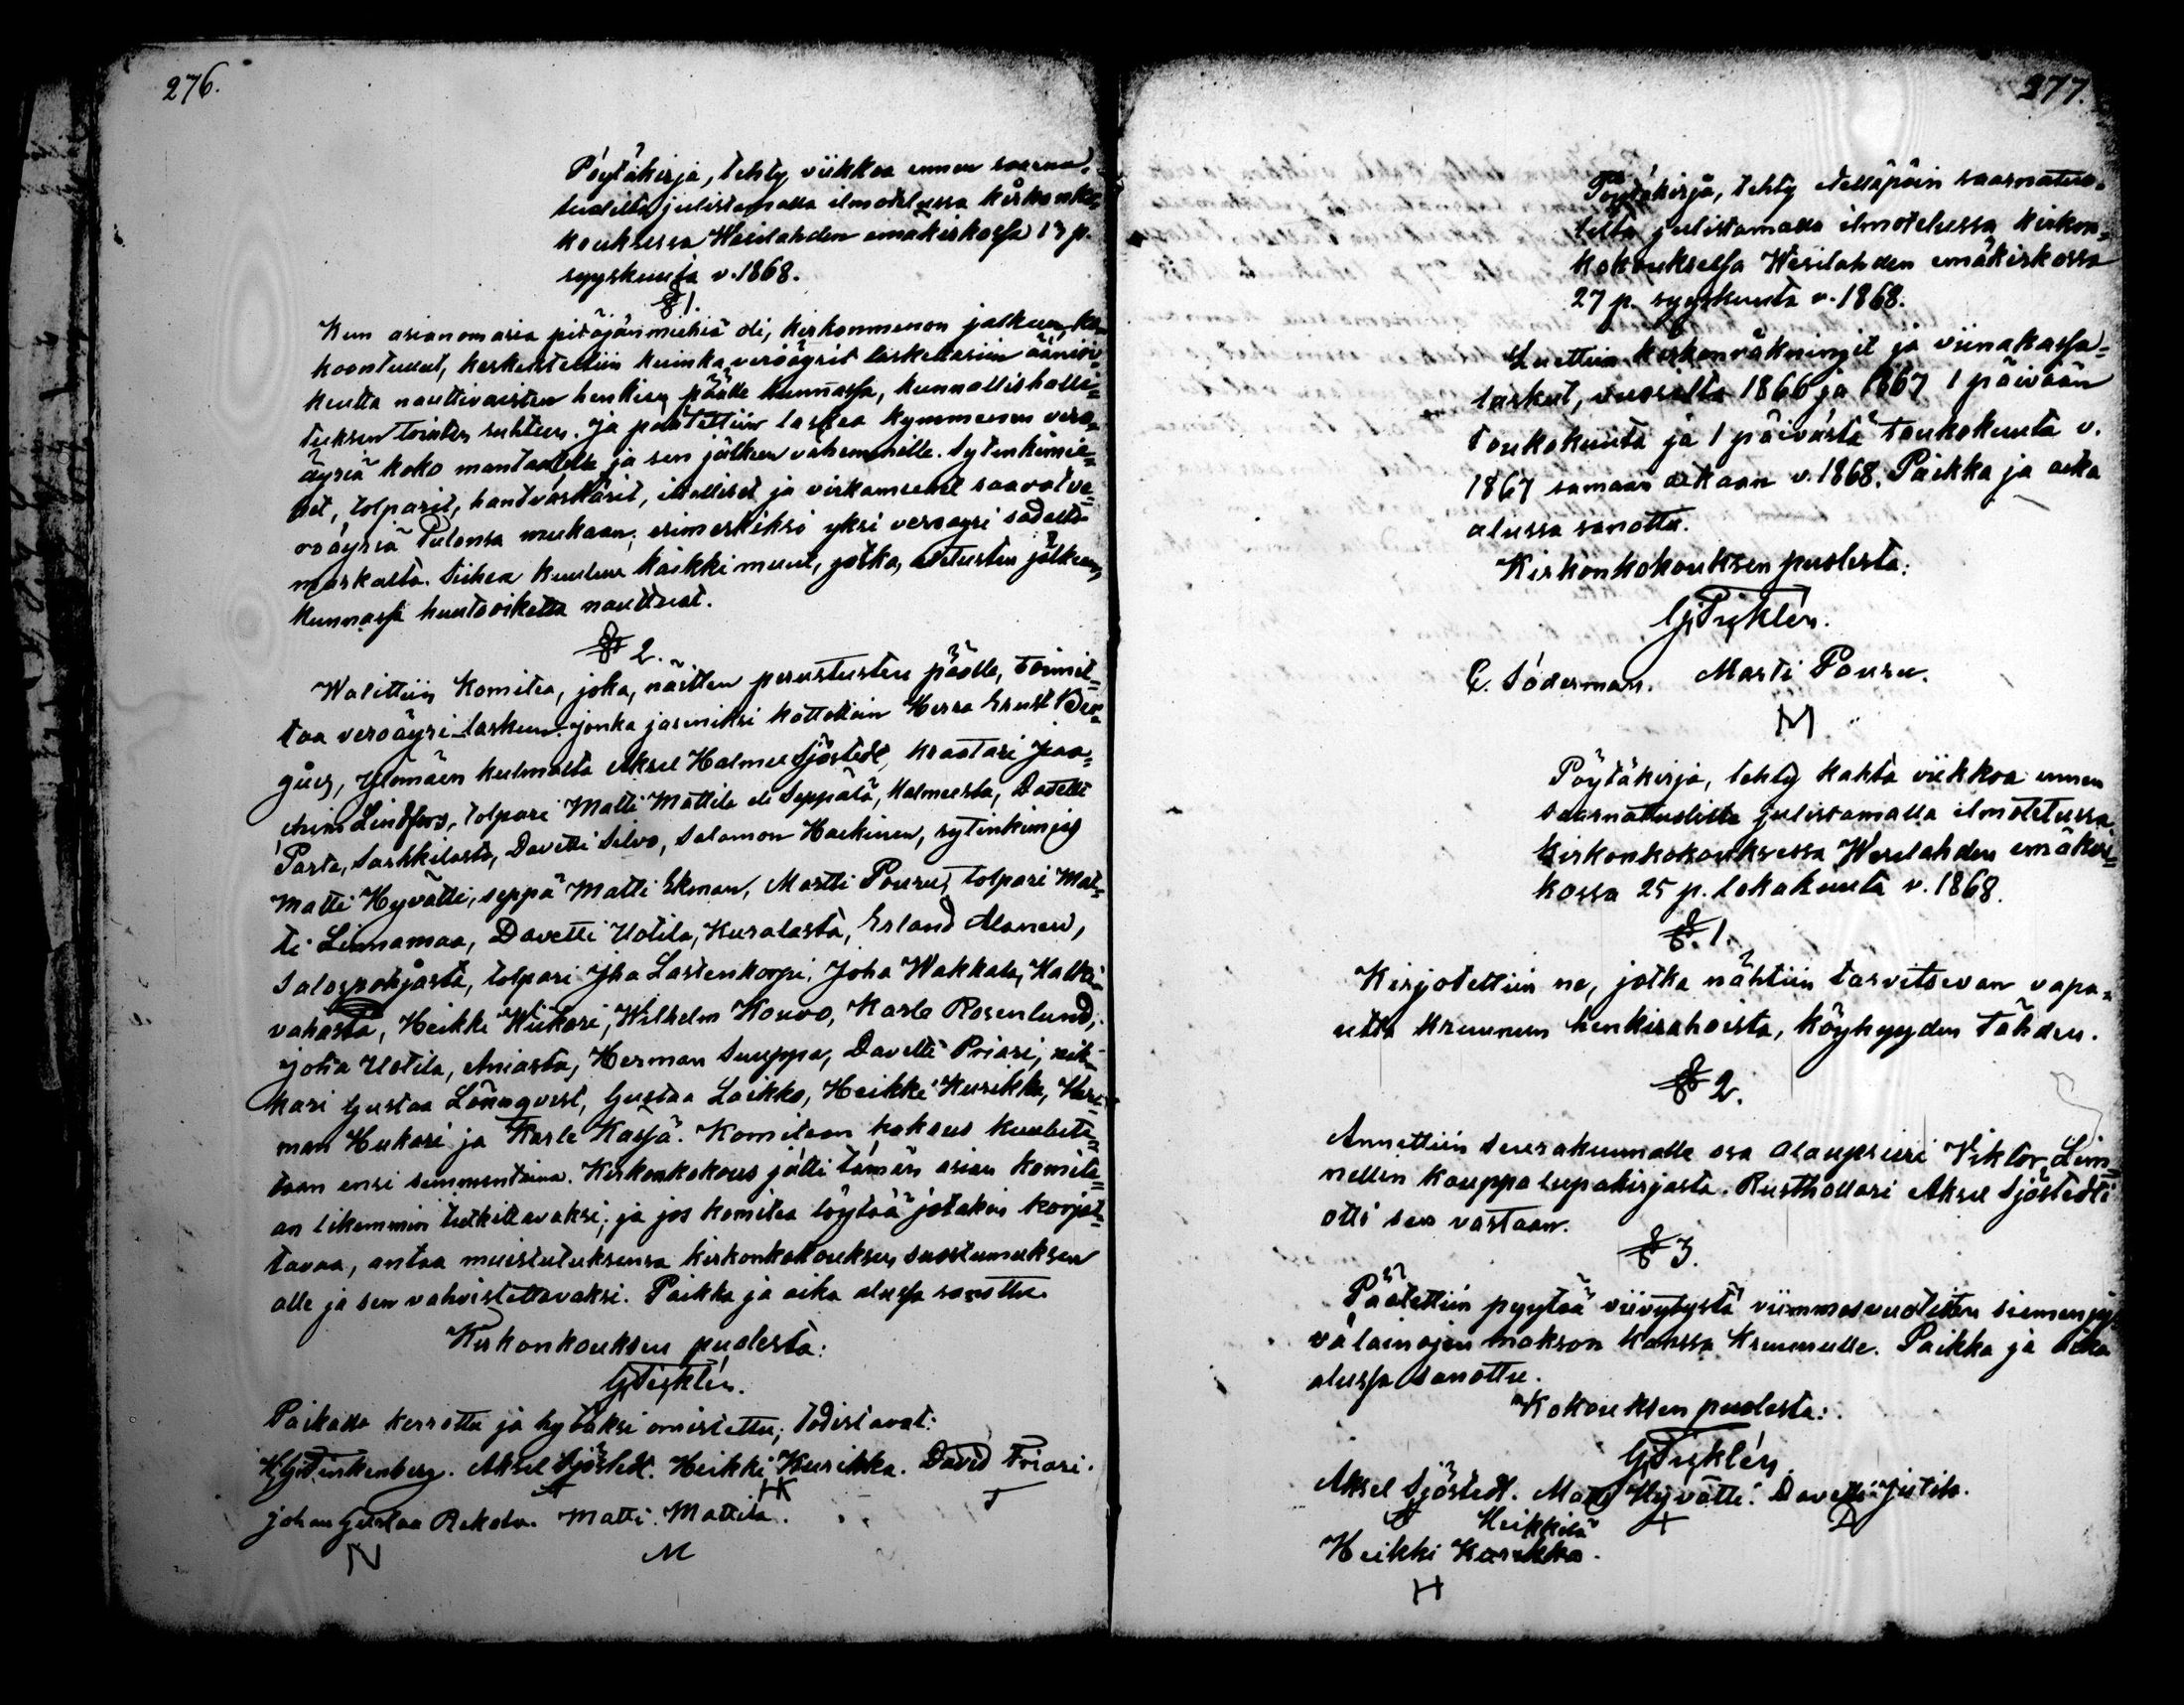 276.
Pöytäkirja, tehty viikkoa ennen saarna-
tuolilta julistamalla ilmotetussa kirkonko-
kouksessa Wesilahden emäkirkossa 13 p.
syyskuuta v. 1868.
§ 1.
Kun asianomasia pitäjänmiehiä oli, kirkonmenon jälkeen, ko-
koontunut, keskusteltiin kuinka veroäyrit laskettasiin äänioi-
keutta nauttivaisten henkien päälle kunnassa, kunnallishalli-
tuksen tointen suhteen. Ja päätettiin laskea kymmenen vero-
äyriä koko mantaalille ja sen jälkeen vähemmille. Sytinkimie-
het, tolparit, hantvärkärit, itselliset ja virkamiehet saavat ve-
roäyriä tulonsa mukaan; esimerkiksi yksi veroäyri sadalta
markalta. Siihen kuuluu kaikki muut, jotka, asetusten jälkeen,
kunnassa huutooiketta nauttivat.
§ 2.
Walittiin Komitea, joka, näitten perustusten päälle, toimit-
taa veroäyri-laskun, jonka jäseniksi katsottiin Herra Ernst
gås, Ylömäen kulmalta Aksel Halmee Sjöstedt, kraatari Joa-
kim Lindfors, tolpari Matti Mattila eli Seppälä, Halmeesta, Davetti
Parta, Sarkkilasta, Davetti Silvo, Salomon Haikinen, sytinkimies
Matti Hyvätti, seppä Matti Ekman, Martti Pouru, tolpari Mat-
ti Linnamaa, Davetti Uotila, Kuralasta, Erland Alanen,
Salospohjasta, tolpari Juha Lastenkorpi, Joha Wakkala, Halki-
vahasta, Heikki Wiikari, Wilhelm Kouvo, Karle Rosenlund,
Joha Uotila, Aniasta, Herman Suuppa, Davetti Priari, nik-
kari Gustaa Lönnqvist, Gustaa Laikko, Heikki Kurikka, Her-
man Hukari ja Karle Kassä. Komitean kokous kuulute-
taan ensi sunnuntaina. Kirkonkokous jätti tämän asian komite-
an likemmin tutkittavaksi; ja jos komitea löytää jotakin korjat-
tavaa, antaa muistutuksensa kirkonkokouksen suostumuksen
alle ja sen vahvistettavaksi. Paikka ja aika alussa sanottu.
Kirkonkouksen puolesta:
Paikalla kerrottu ja hyväksi omistettu; todistavat:
Aksel Sjöstedt. Heikki Kurikka. David Priari.
HK
Johan Gustaa Rekola. Matti Mattila.
N M
277.
Pöytäkirja, tehty edelläpäin saarnatuo-
lilta julistamalla ilmotetussa kirkon-
kokouksessa Wesilahden emäkirkossa
27 p. syyskuuta v. 1868.
Luettiin kirkonräkningit ja viinakassa-
laskut, vuosilta 1866 ja 1867 1 päivään
toukokuuta ja 1 päivästä toukokuuta v.
1867 samaan aikaan v. 1868. Paikka ja aika
alussa sanottu.
Kirkonkokouksen puolesta:
C. Söderman. Marti Pouru.
M
Pöytäkirja, tehty kahta viikkoa ennen
saarnatuolista julistamalla ilmotetussa
kirkonkokouksessa Wesilahden emäkir-
kossa 25 p. lokakuuta v. 1868.
§ 1.
Kirjotettiin ne, jotka nähtiin tarvitsevan vapa-
utta kruunun henkirahoista, köyhyyden tähden.
§ 2.
Annettiin Seurakunnalle osa alaupsieri Viktor Lin-
nellin kauppalupakirjasta. Rusthollari Aksel Sjöstedti
otti sen vastaan.
§ 3.
Päätettiin pyytää viivytystä viimmesvuotisten siemenjy-
välainojen makson kanssa Kruunulle. Paikka ja aika
alussa sanottu.
Kokouksen puolesta:
Aksel Sjöstedt. Matti Hyvätti. Davetti Jutila.
Heikkilä
Heikki Kurikka.
H